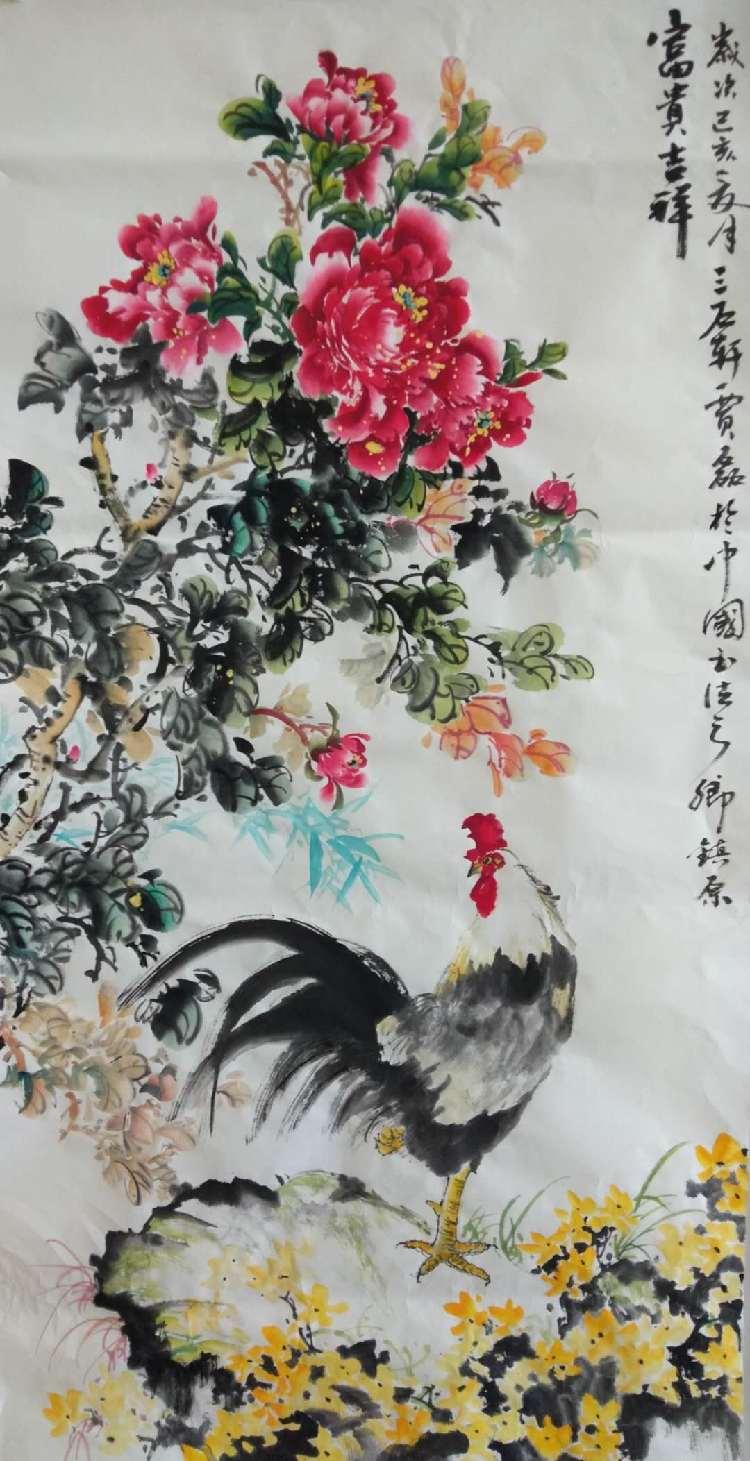 歲次己亥夏月三石軒賈磊於中國書法之鄉鎮原
富貴吉祥